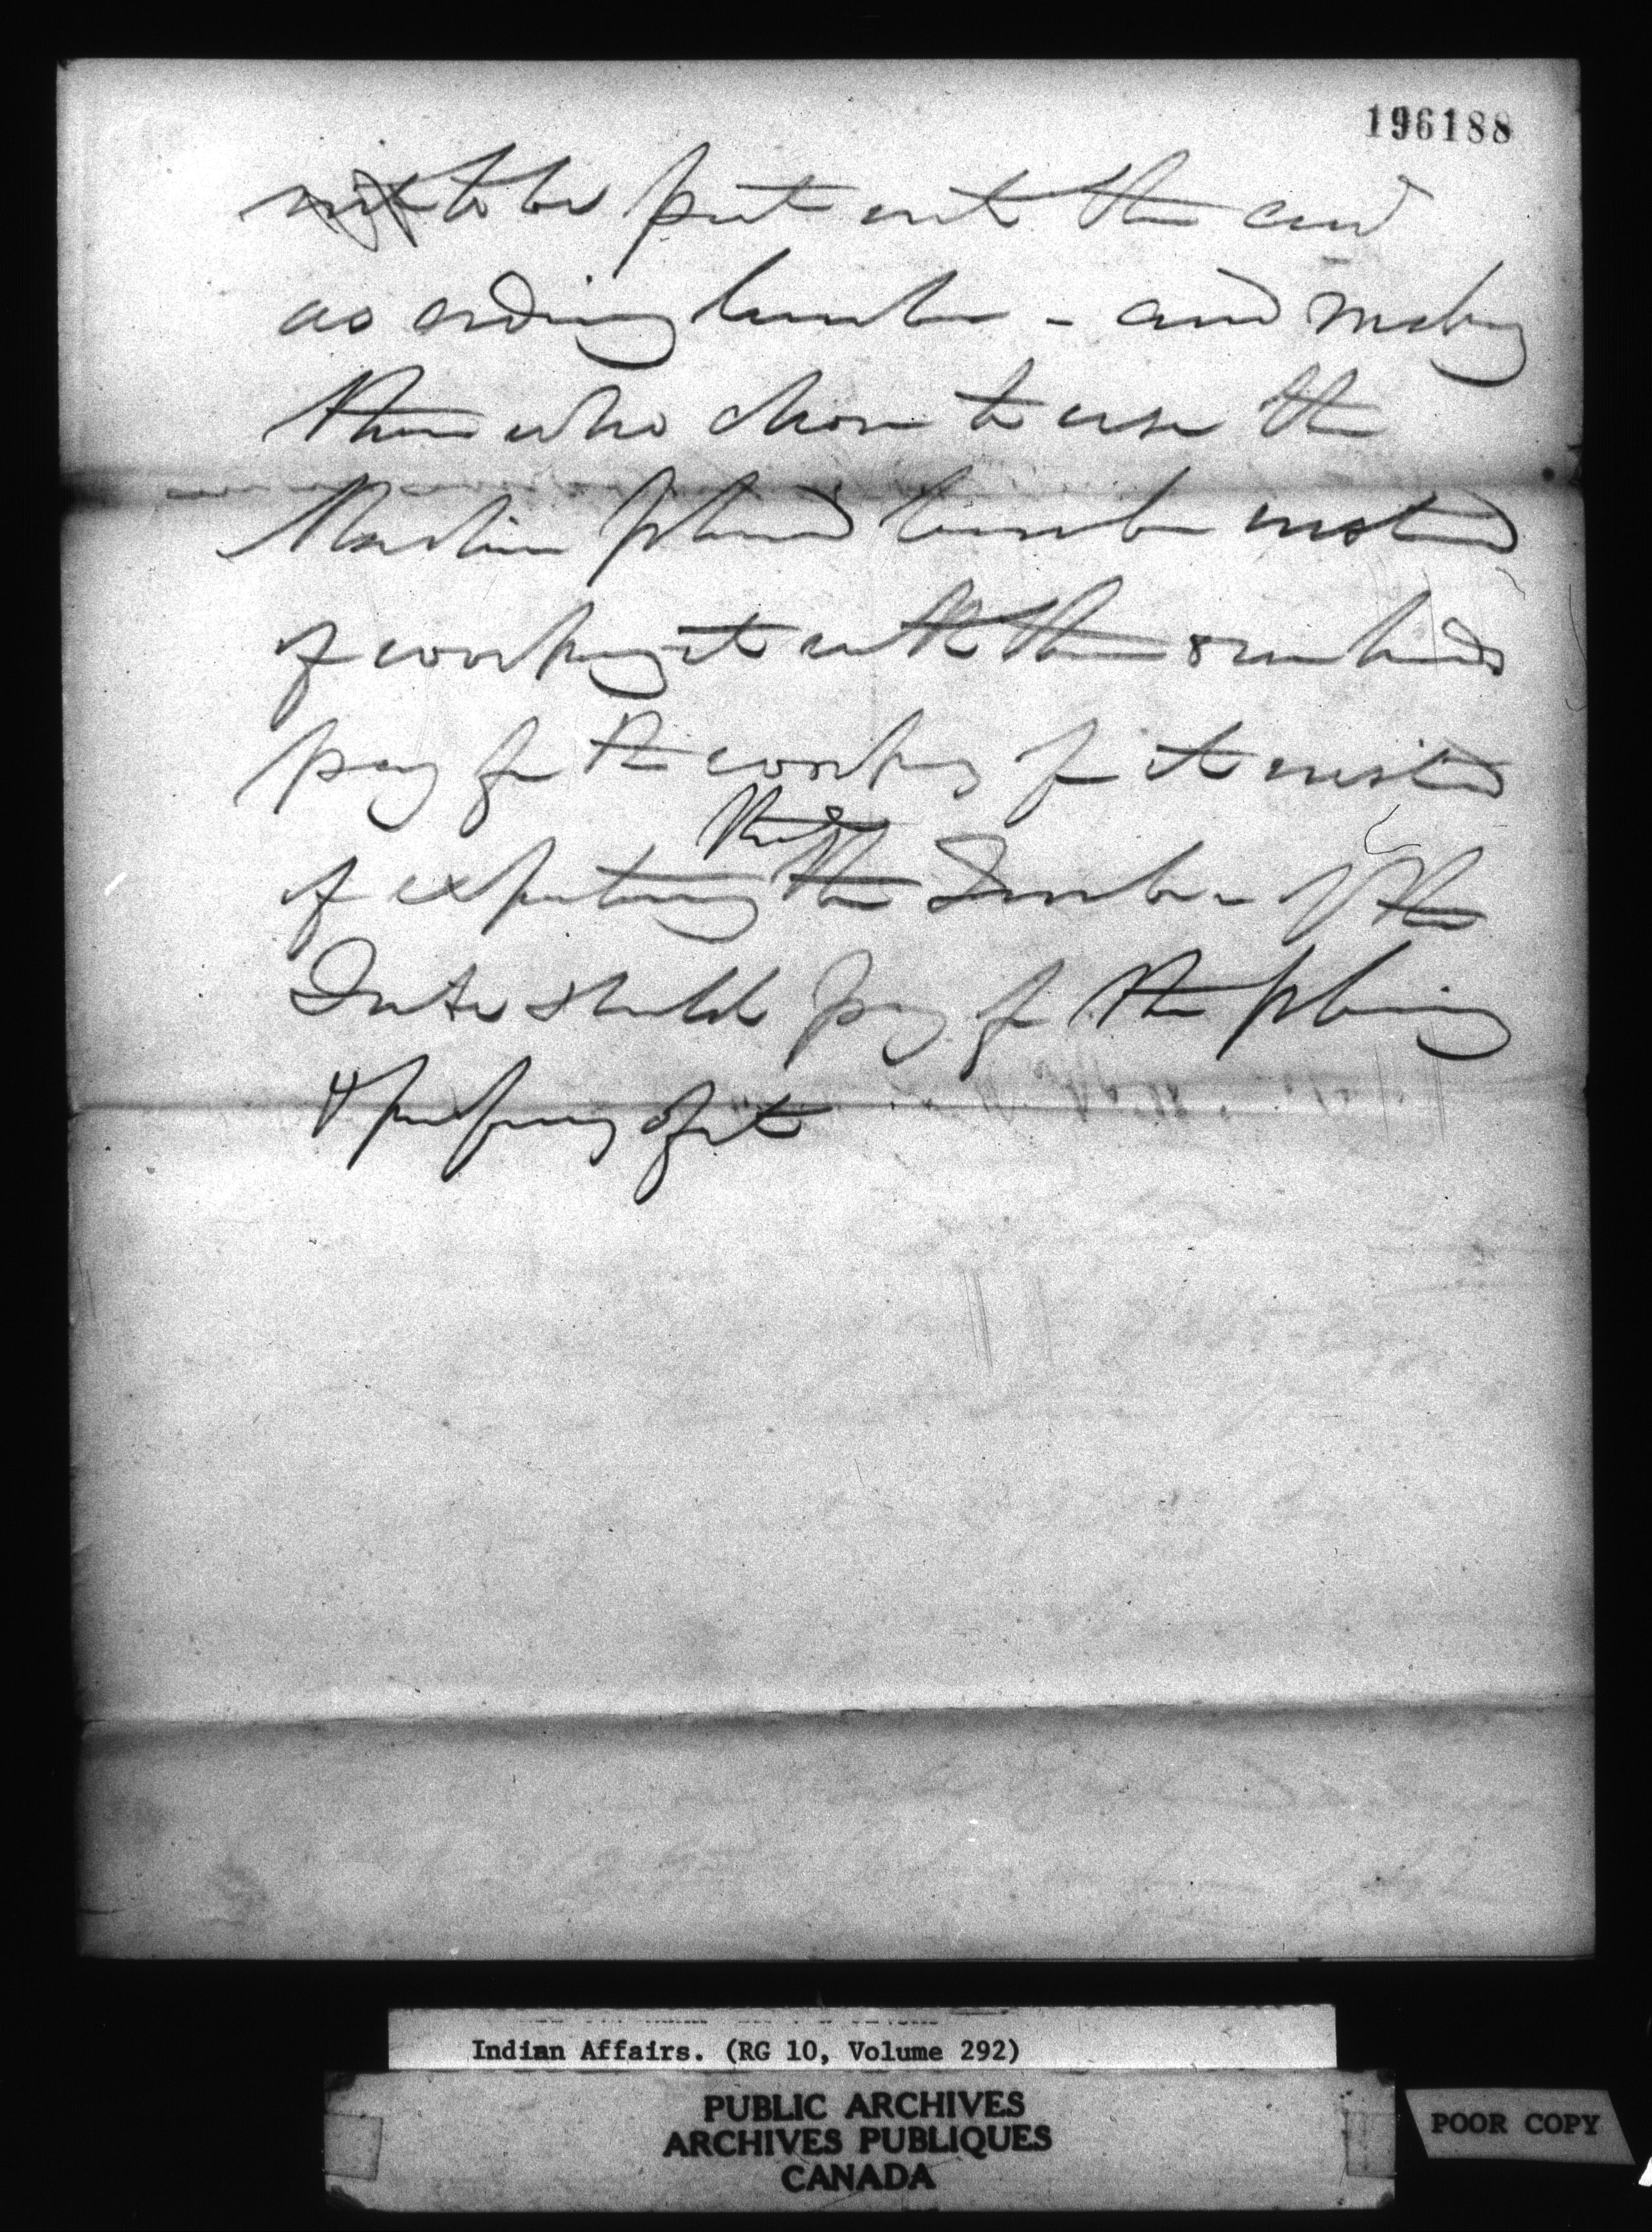 196188
to be put into the and
as ordinary lumber - and making
those who chose to use the
Machine planed lumber instead
of working it with their own hands
pay for the working of it instead
of expecting that the Lumber of the
should pay for the planing
& preparing of it
Indian Affairs. (RG 10, Volume 292)
PUBLIC ARCHIVES
ARCHIVES PUBLIQUES
CANADA
POOR COPY